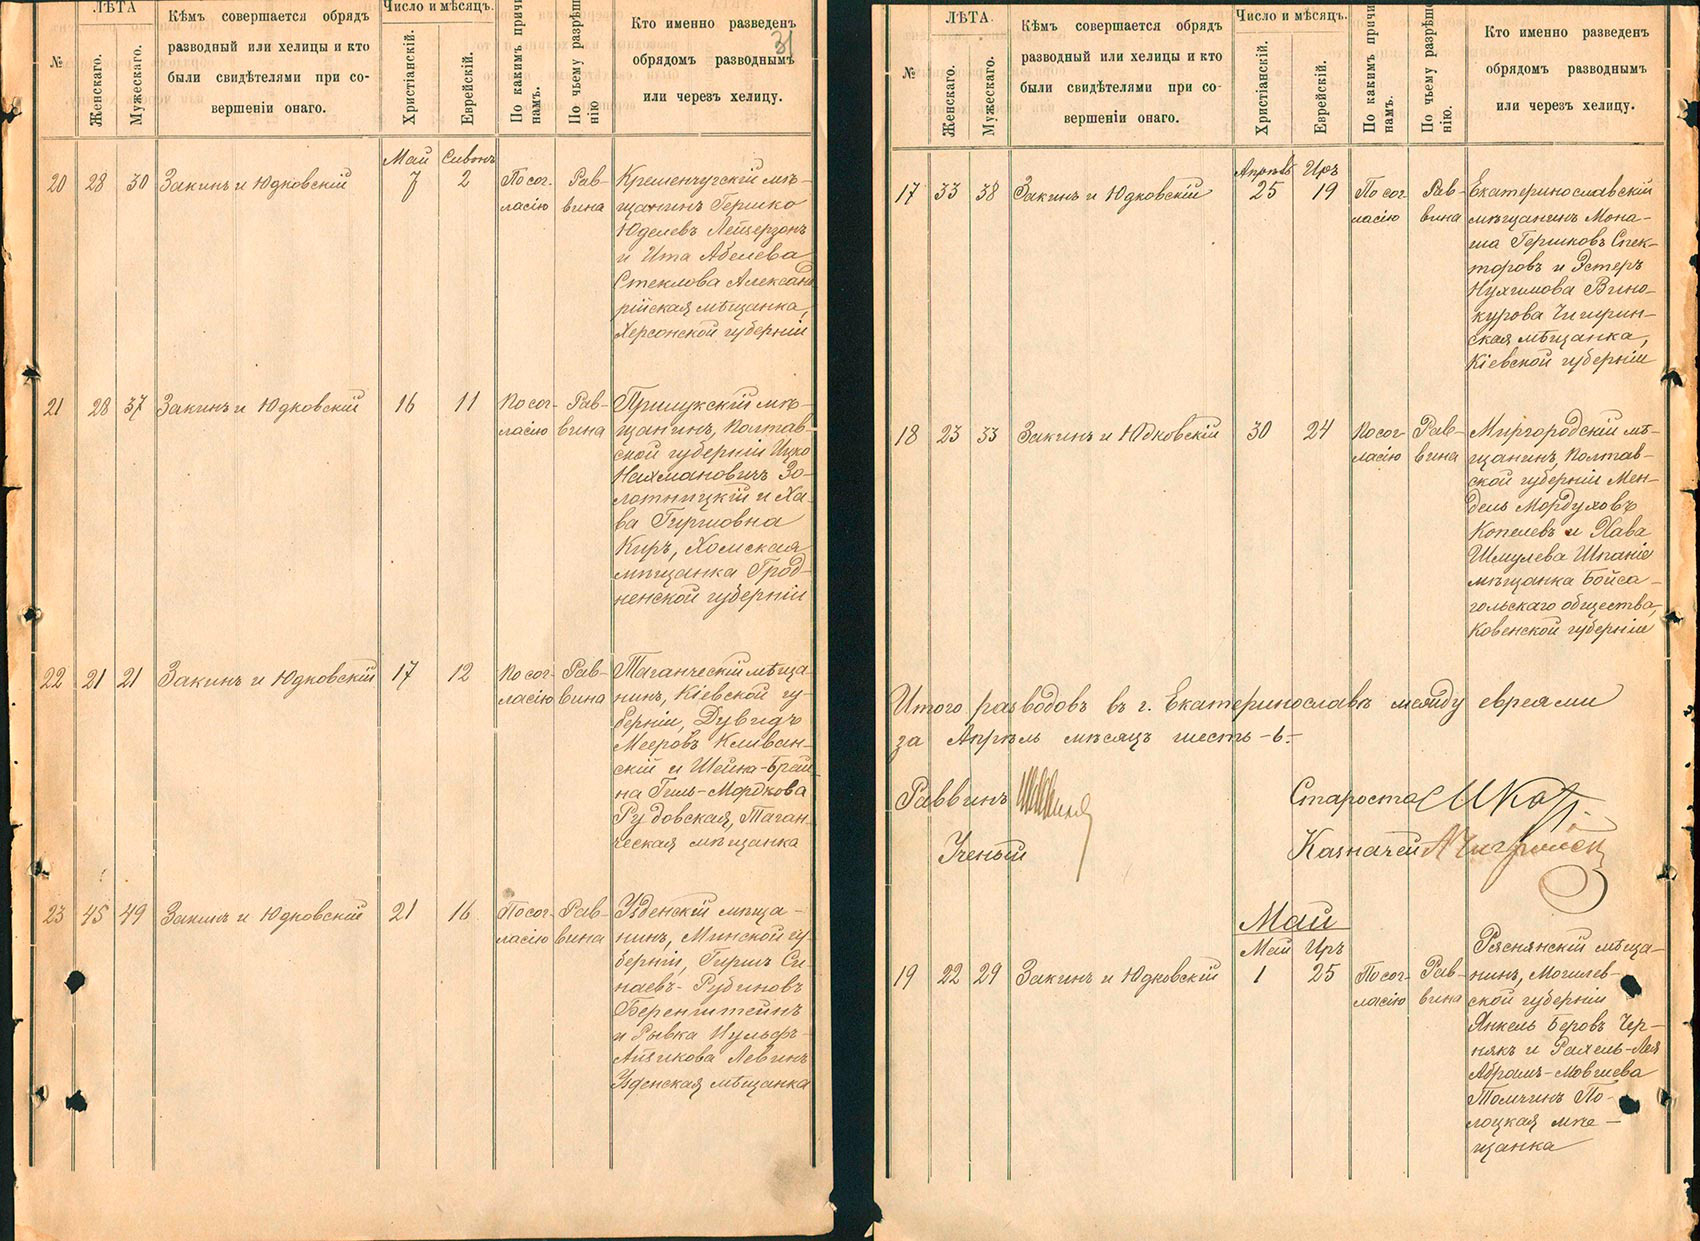 31
№
ЛѢТА
Женскаго.
Мужескаго.
Кѣмъ совершается обрядъ
разводный или хелицы и кто
были свидѣтелями при со-
вершеніи онаго.
Число и мѣсяцъ.
Христіанскій.
Еврейскій.
По какимъ причи
намъ.
По чьему разрѣш
нію
Кто именно разведенъ
обрядомъ разводнымъ
или черезъ хелицу.
Май Сивонъ
20 28 30 Закинъ и Юдковскій 7 2 По сог- Рав- Кременчугскій мѣ-
ласію вина щанинъ Гершко
Юделевъ Лейзерзонъ
и Ита Абелева
Стеклова Александ
рійская мѣщанка,
Херсонской губерніи
21 28 37 Закинъ и Юдковскій 16 11 По сог- Рав- Прилукскій мѣ-
ласію вина щанинъ, Полтав-
ской губерніи Ицко
Нахмановичъ Зо-
лотницкій и Ха-
ва Гиршовна
Киръ, Хомская
мѣщанка Грод-
ненской губерніи
22 21 21 Закинъ и Юдковскій 17 12 По сог- Рав- Таганческій мѣща-
ласію вина нинъ, Кіевской гу-
берніи, Дувидъ
Мееровъ Кливан-
скій и Шейна-Брай-
на Гиль-Мордкова
Рудовская, Таган-
ческая мѣщанка
23 45 49 Закинъ и Юдковскій 21 16 По сог- Рав- Узденскій мѣща-
ласію вина нинъ, Минской гу-
берніи, Гиршъ Си-
наевъ-Рубиновъ
Беренштейнъ
и Рывка Нульфъ-
Айзикова Левинъ
Узденская мѣщанка
№
ЛѢТА.
Женскаго.
Мужескаго.
Кѣмъ совершается обрядъ
разводный или хелицы и кто
были свидѣтелями при со-
вершеніи онаго.
Число и мѣсяцъ.
Христіанскій.
Еврейскій.
По какимъ причи
намъ.
По чьему разрѣше
нію.
Кто именно разведенъ
обрядомъ разводнымъ
или черезъ хелицу.
Апрѣль Иръ
17 33 38 Закинъ и Юдковскій 25 19 По сог- Рав- Екатеринославскій
ласію вина мѣщанинъ Мона-
ша Гершковъ Спек-
торовъ и Эстеръ
Нухимова Вино-
курова Чигирин-
ская мѣщанка,
Кіевской губерніи
18 23 33 Закинъ и Юдковскій 30 24 По сог- Рав- Миргородскій мѣ-
ласію вина щанинъ, Полтав-
ской губерніи Мен-
дель Мордуховъ
Копелевъ и Хава
Шмулева Шпаніе
мѣщанка Бойса-
гольскаго общества,
Ковенской губерніи
Итого разводовъ въ г. Екатеринославѣ между евреями
за Апрѣль мѣсяцъ шесть -6-
Раввинъ
Староста
Ученый
Казначей
Май
Май Иръ
19 22 29 Закинъ и Юдковскій 1 25 По сог- Рав- Ряснянскій мѣща-
ласію вина нинъ, Могилев-
ской губерніи
Янкель Беровъ Чер-
някъ и Рахель-Лея
Абрамъ-Мовшева
Томчинъ По-
лоцкая мѣ-
щанка